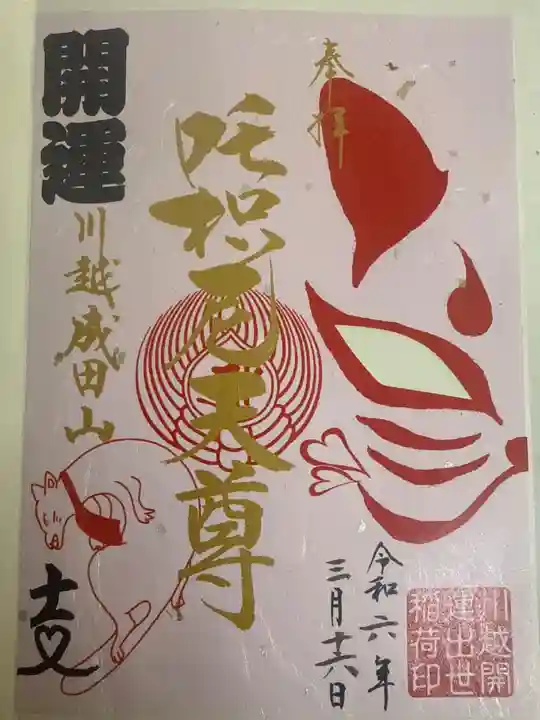 奉拝
開運
吒枳尼天尊
川越成田山
令和六年
三月十六日
川越開
運出世
稲荷印